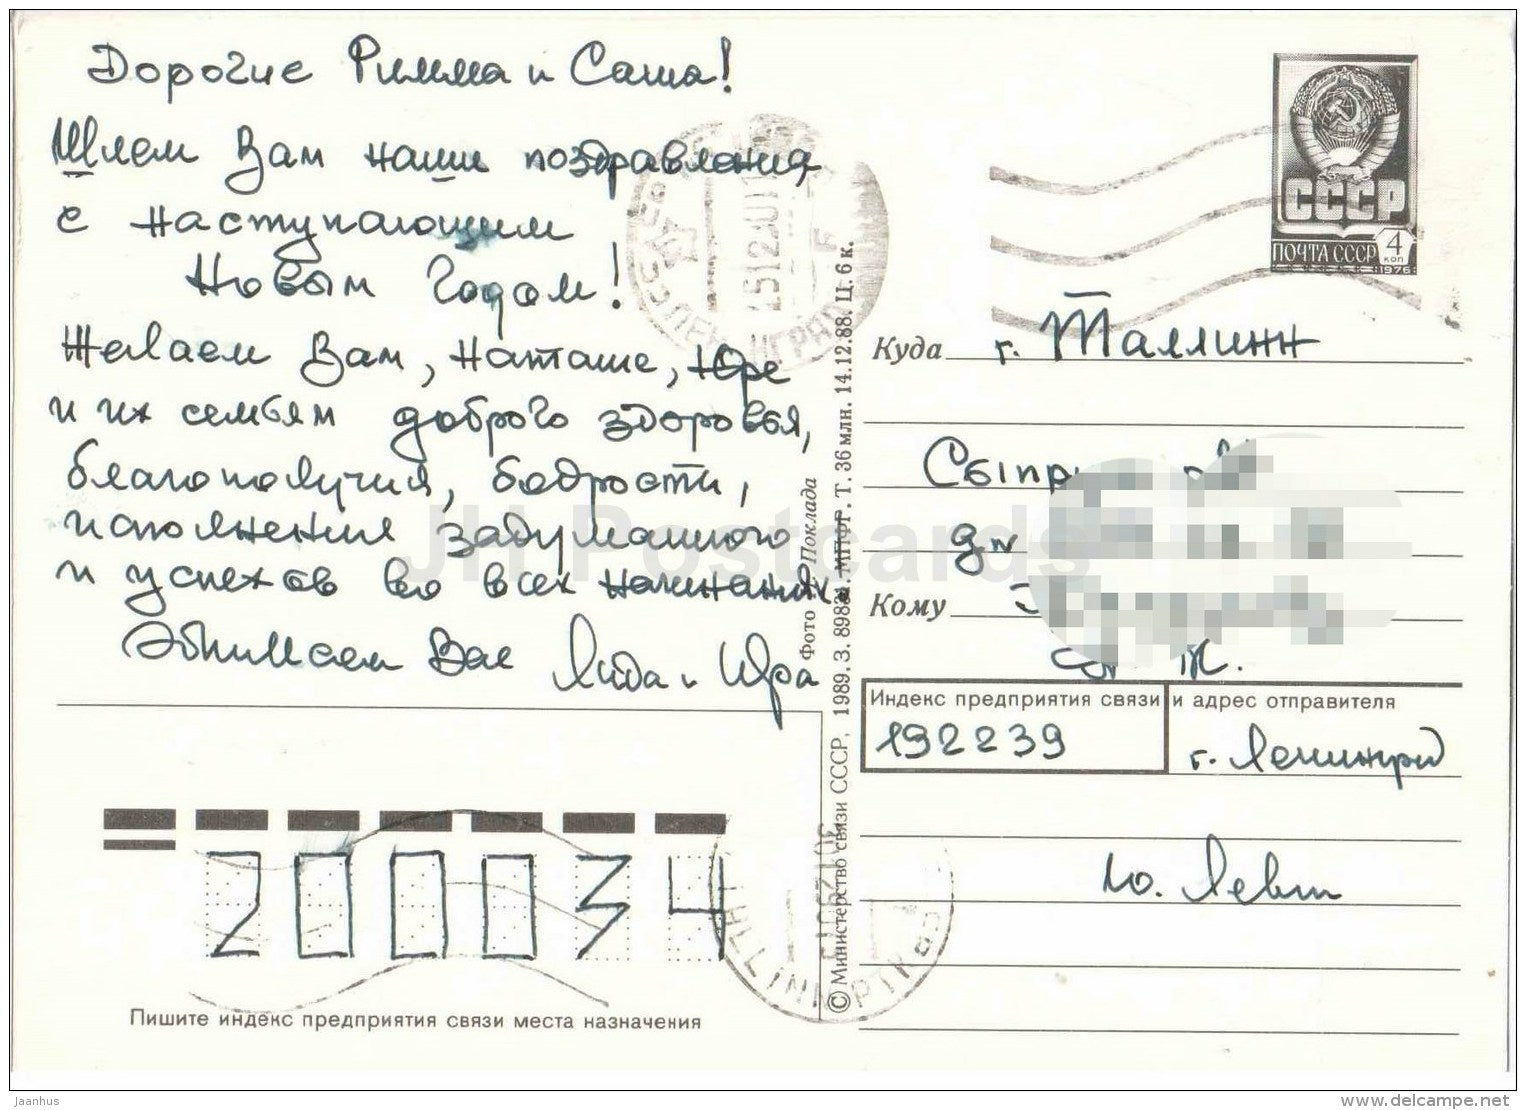 Дорогие Римма и Саша!
Шлем Вам наши поздравления
с наступающим
Новым Годом!
Желаем Вам, Наташе, Юре
и их семьям доброго здоровья,
благополучия, бодрости,
исполнения задуманного
и успехов во всех начинаниях.
Обнимаем Вас Лида и Юра
200034
Пишите индекс предприятия связи места назначения
© Министерство связи СССР, 1989. З. 89881. МПФГ. Т. 36 млн. 14.12.88. Ц. 6 к.
Фото Поклада
СССР
ПОЧТА СССР 4 коп
1976
Куда г. Таллинн
Кому
Ж.
Индекс предприятия связи и адрес отправителя
192239 г. Ленинград
Ю. Левит
JH Postcards
Jaanhus
www.delcampe.net